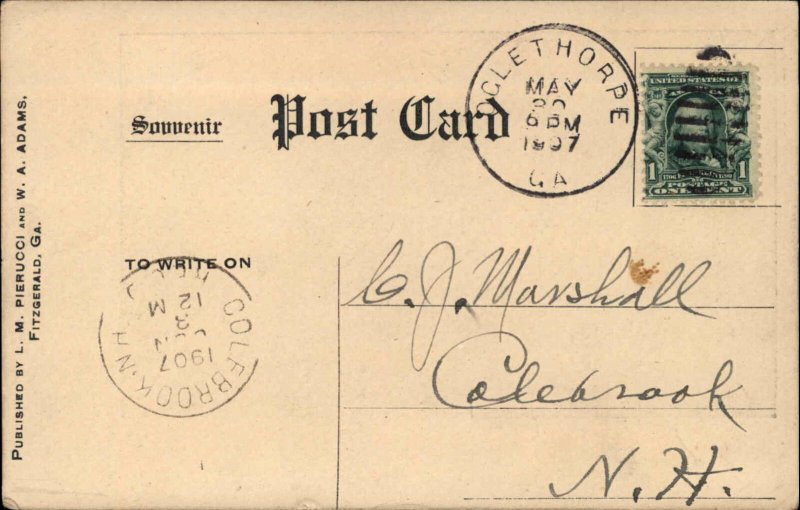 OGLETHORPE
MAY
6 PM
1907
GA
UNITED STATES OF
1 1
POSTAGE
ONE CENT
Souvenir Post Card
PUBLISHED BY L. M. PIERUCCI AND W. A. ADAMS,
FITZGERALD, GA.
TO WRITE ON
COLEBROOK, N.H.
12
M
1907
C. J. Marshall
Colebrook
N. H.